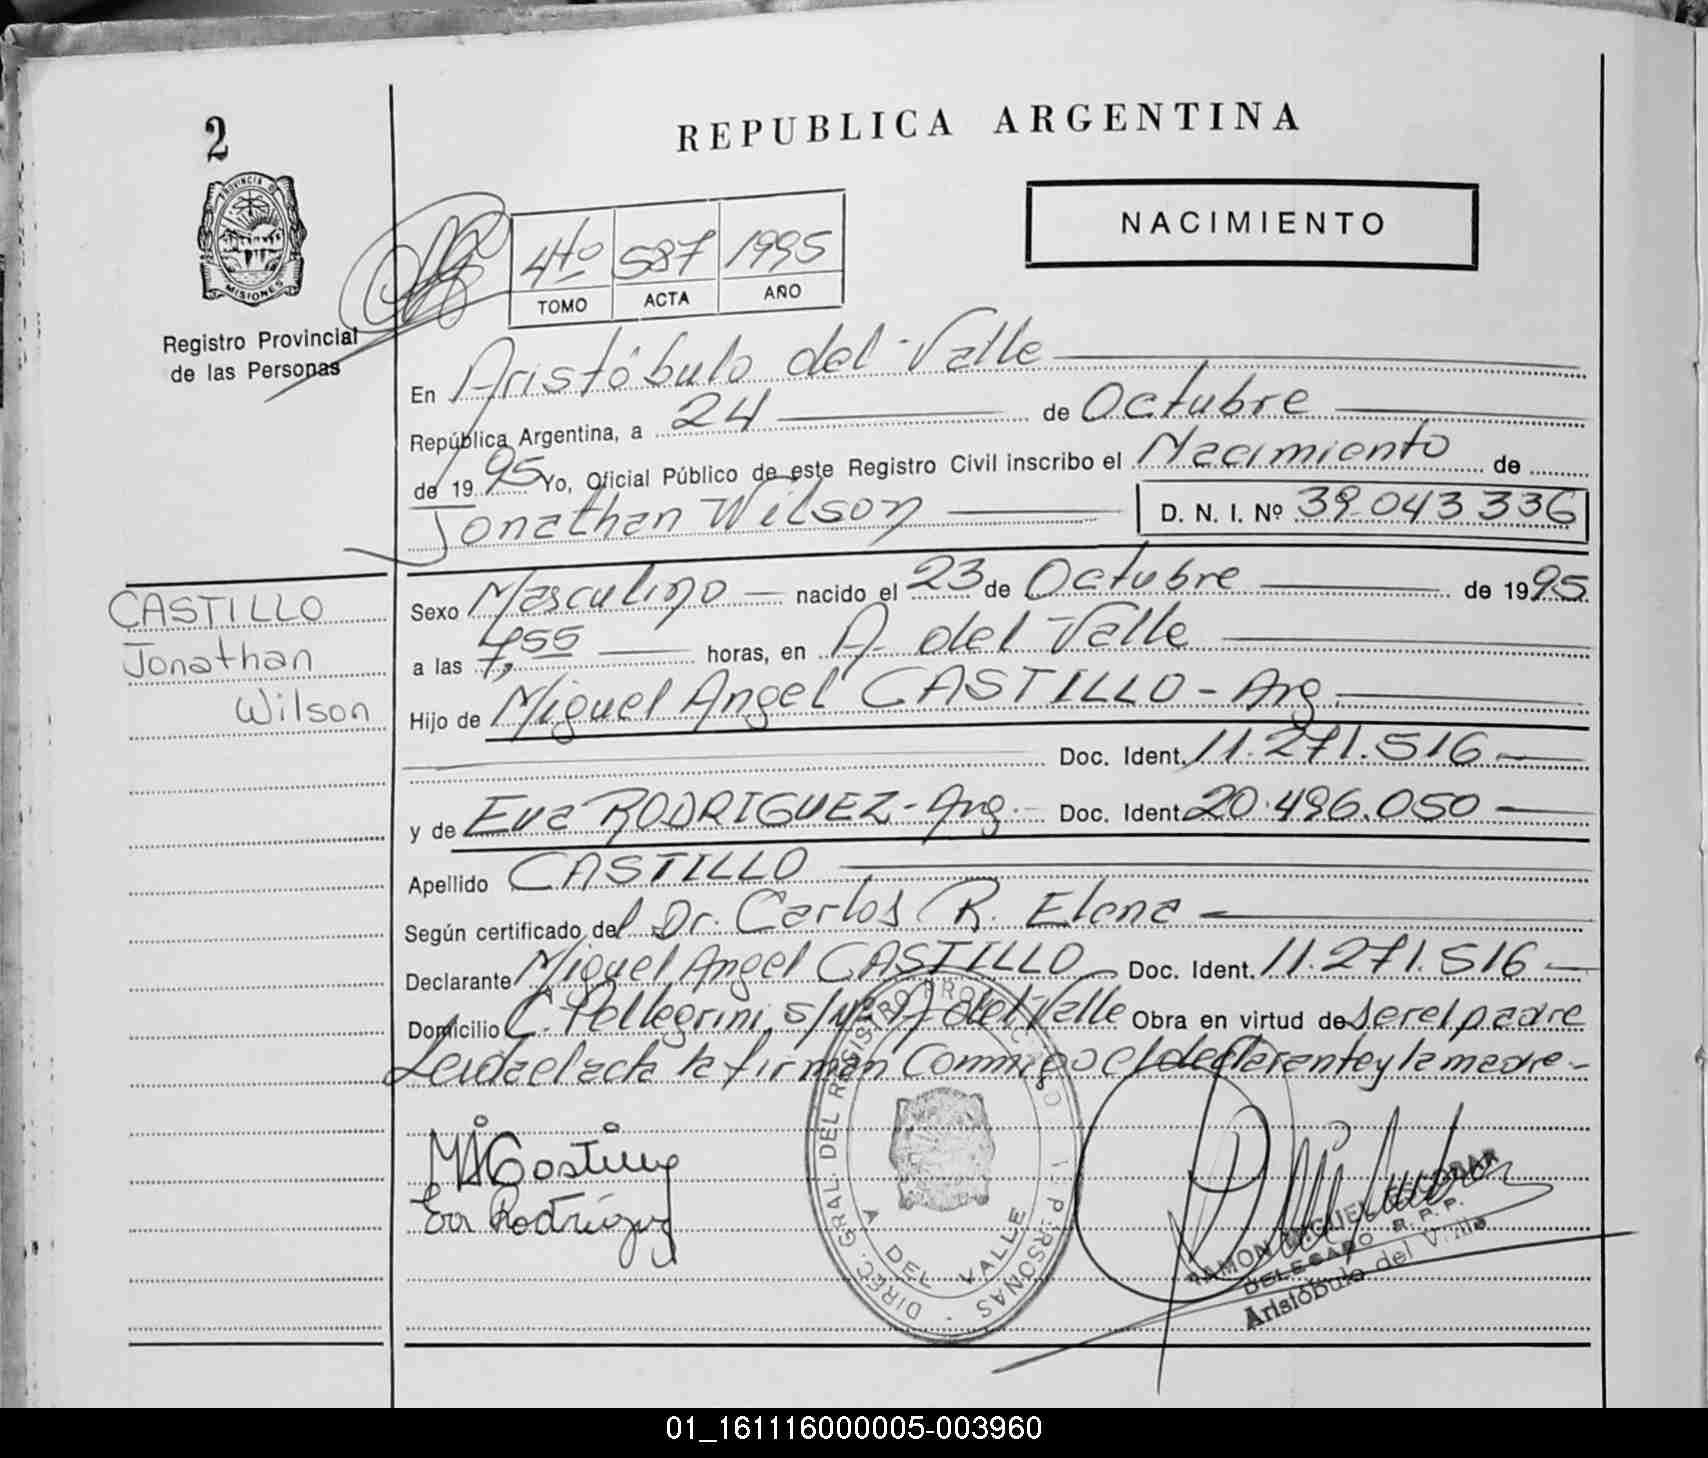 2
REPUBLICA ARGENTINA
PROVINCIA D
MISIONES
Registro Provincial
de las Personas
NACIMIENTO
4to 587 1995
TOMO ACTA AÑO
En Aristóbulo del Valle
República Argentina, a 24 de Octubre
de 1995 Yo, Oficial Público de este Registro Civil inscribo el Nacimiento de
Jonathan Wilson D. N. I. Nº 39.043.336
CASTILLO
Jonathan
Wilson
Sexo Masculino nacido el 23 de Octubre de 1995
a las 7,55 horas, en A. del Valle
Hijo de Miguel Angel CASTILLO - Arg.
Doc. Ident. 11.271.516
y de Eva RODRIGUEZ - Arg. Doc. Ident. 20.496.050
Apellido CASTILLO
Según certificado del Dr. Carlos R. Elena
Declarante Miguel Angel CASTILLO Doc. Ident. 11.271.516
Domicilio C. Pellegrini, s/nº A del Valle Obra en virtud de ser el padre
Leida el acta la firman Conmigo el declarante y la madre -
MACastillo
Eva Rodríguez
DIREC. GRAL. DEL REGISTRO PROV PERSONAS
A DEL VALLE
RAMON MIGUEL
DELEGADO R. P. P.
Aristóbulo del Valle
01_161116000005-003960